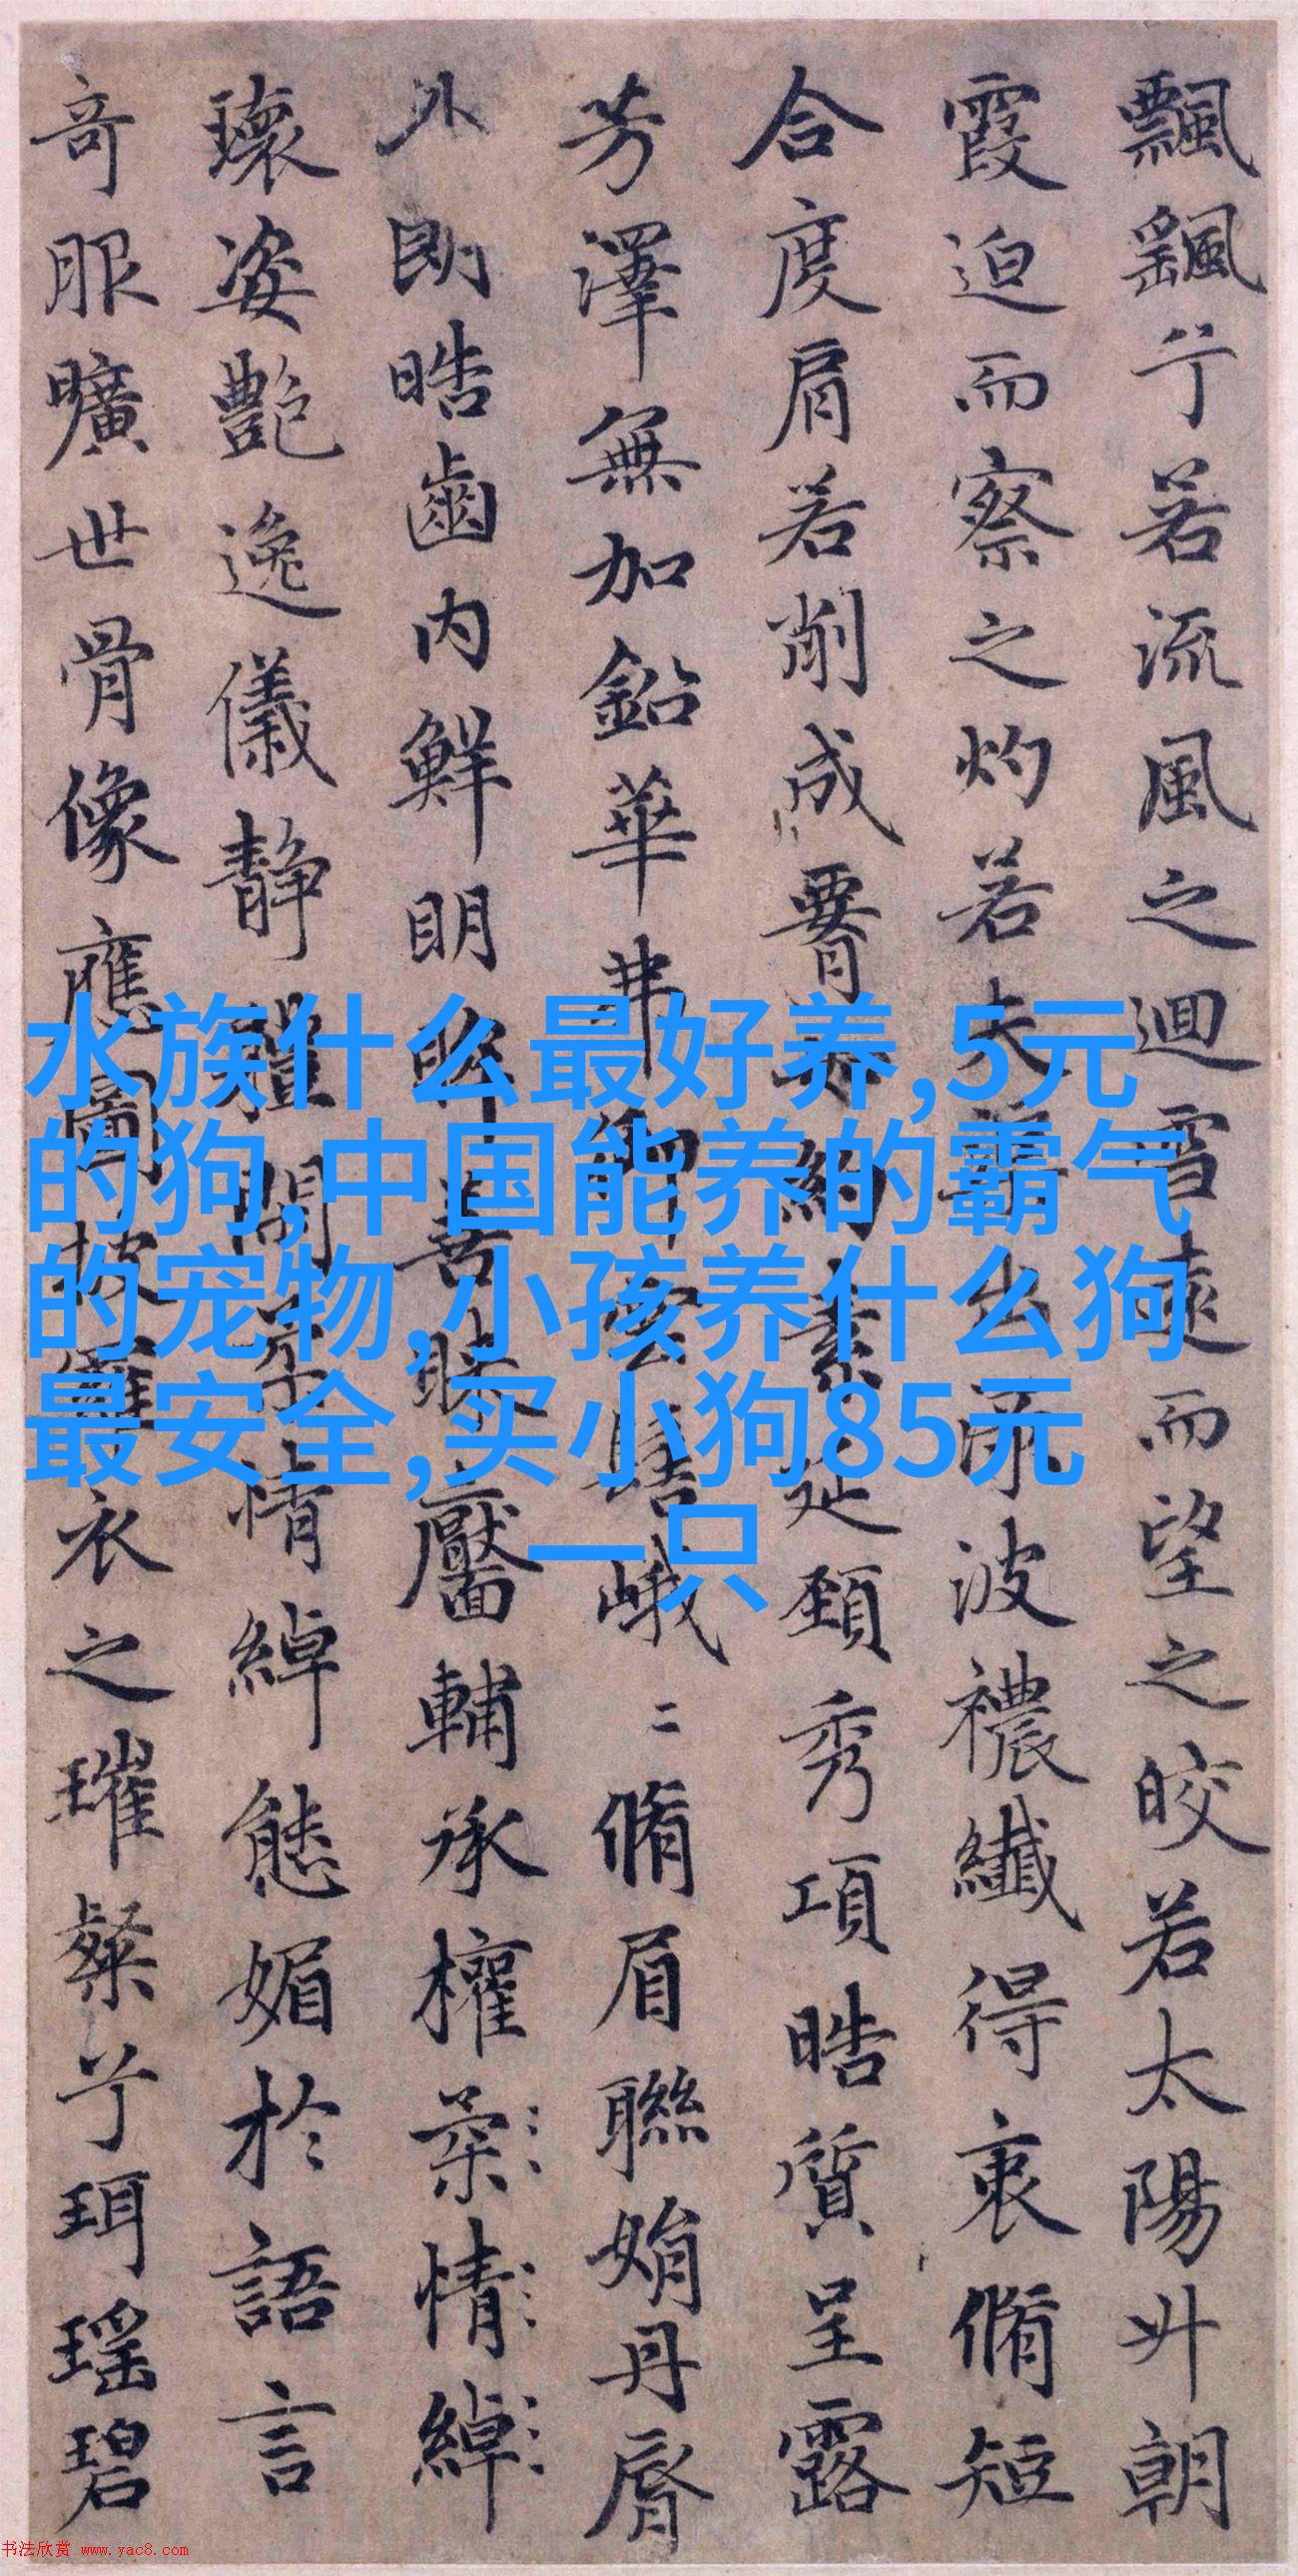 飄飖兮若流風之迴雪遠而望之皎若太陽升朝
霞迫而察之灼若夫蕖出淥波襛纖得衷脩短
合度肩若削成腰如約素延頸秀項皓質呈露
芳澤無加鉛華弗御雲髻峨二脩眉聯娟丹脣
外朗皓齒内鮮明眸善睞靨輔承權柔情綽
瓌姿艷逸儀靜體閒柔情綽態媚於語言
奇服曠世骨像應圖披羅衣之璀粲兮珥瑤碧
水族什么最好养,5元
的狗,中国能养的霸气
的宠物,小孩养什么狗
最安全,买小狗85元
一只
书法欣赏 www.yac8.com